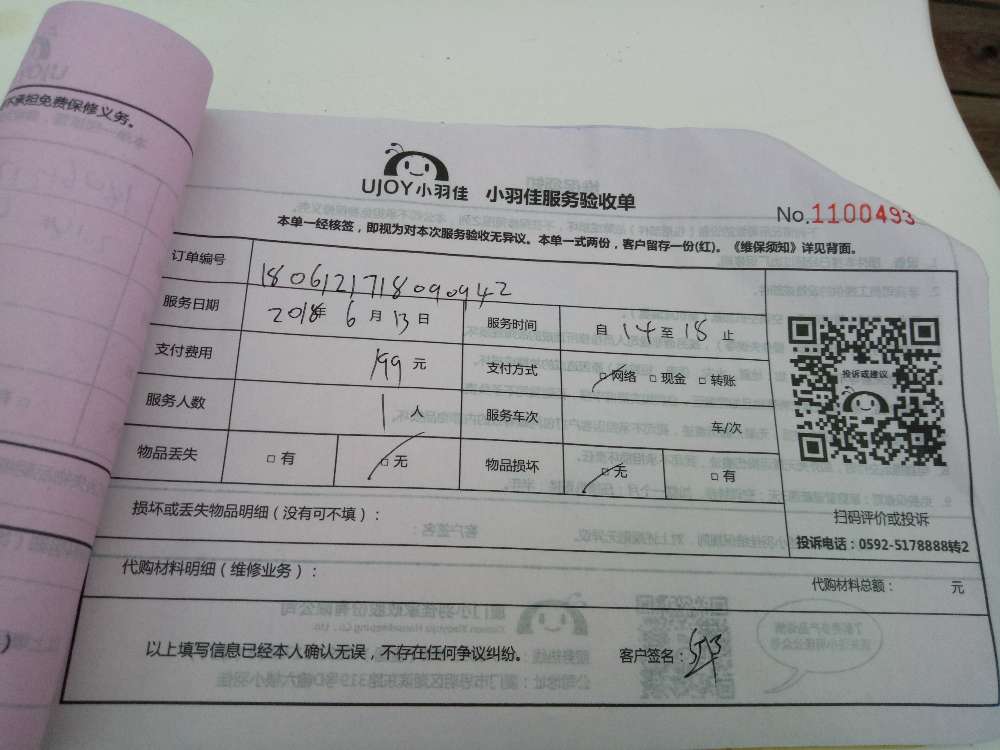 不承担免费保修义务。
UJOY小羽佳 小羽佳服务验收单
No.1100493
本单一经核签，即视为对本次服务验收无异议。本单一式两份，客户留存一份(红)。《维保须知》详见背面。
订单编号 180612171809 0942
服务日期 2018年 6 月 13 日 服务时间 自 14 至 18 止
支付费用 199 元 支付方式 □网络 □现金 □转账
服务人数 1 人 服务车次 车/次
物品丢失 □有 □无 物品损坏 □无 □有
投诉或建议
扫码评价或投诉
投诉电话：0592-5178888转2
损坏或丢失物品明细（没有可不填）：
代购材料明细（维修业务）： 代购材料总额： 元
以上填写信息已经本人确认无误，不存在任何争议纠纷。 客户签名：